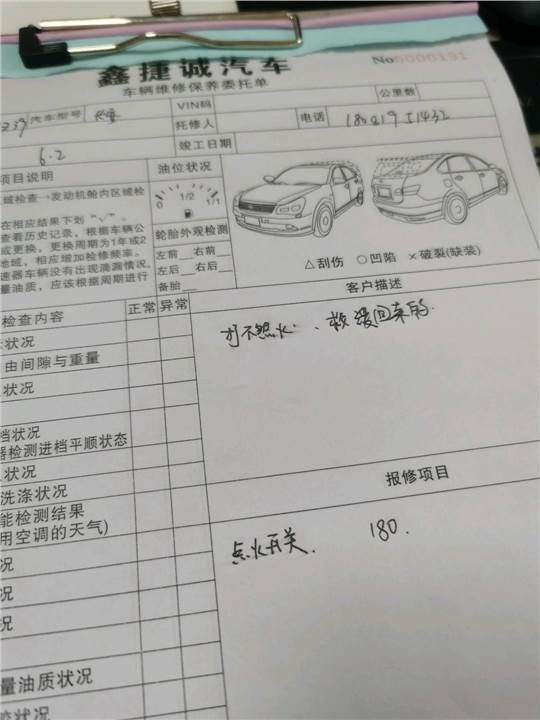 鑫捷诚汽车
No0000191
车辆维修保养委托单
汽车型号
VIN码
公里数
托修人
电话
6.2
竣工日期
项目说明
油位状况
域检查→发动机舱内区域检
0 1/2 1/1
在相应结果下划“ˇ”。
查看历史记录，根据车辆公
或更换。更换周期为1年或2
地域，相应增加检修频率。
速器车辆没有出现滴漏情况，
量油质，应该根据周期进行
轮胎外观检测
左前__右前__
左后__右后__
备胎__
△刮伤 ○凹陷 ×破裂(缺装)
检查内容
正常 异常
客户描述
状况
打不然火、救援回来的
由间隙与重量
状况
档状况
器检测进档平顺状态
状况
报修项目
洗涤状况
能检测结果
用空调的天气)
点火开关. 180.
况
况
况
量油质状况
状况